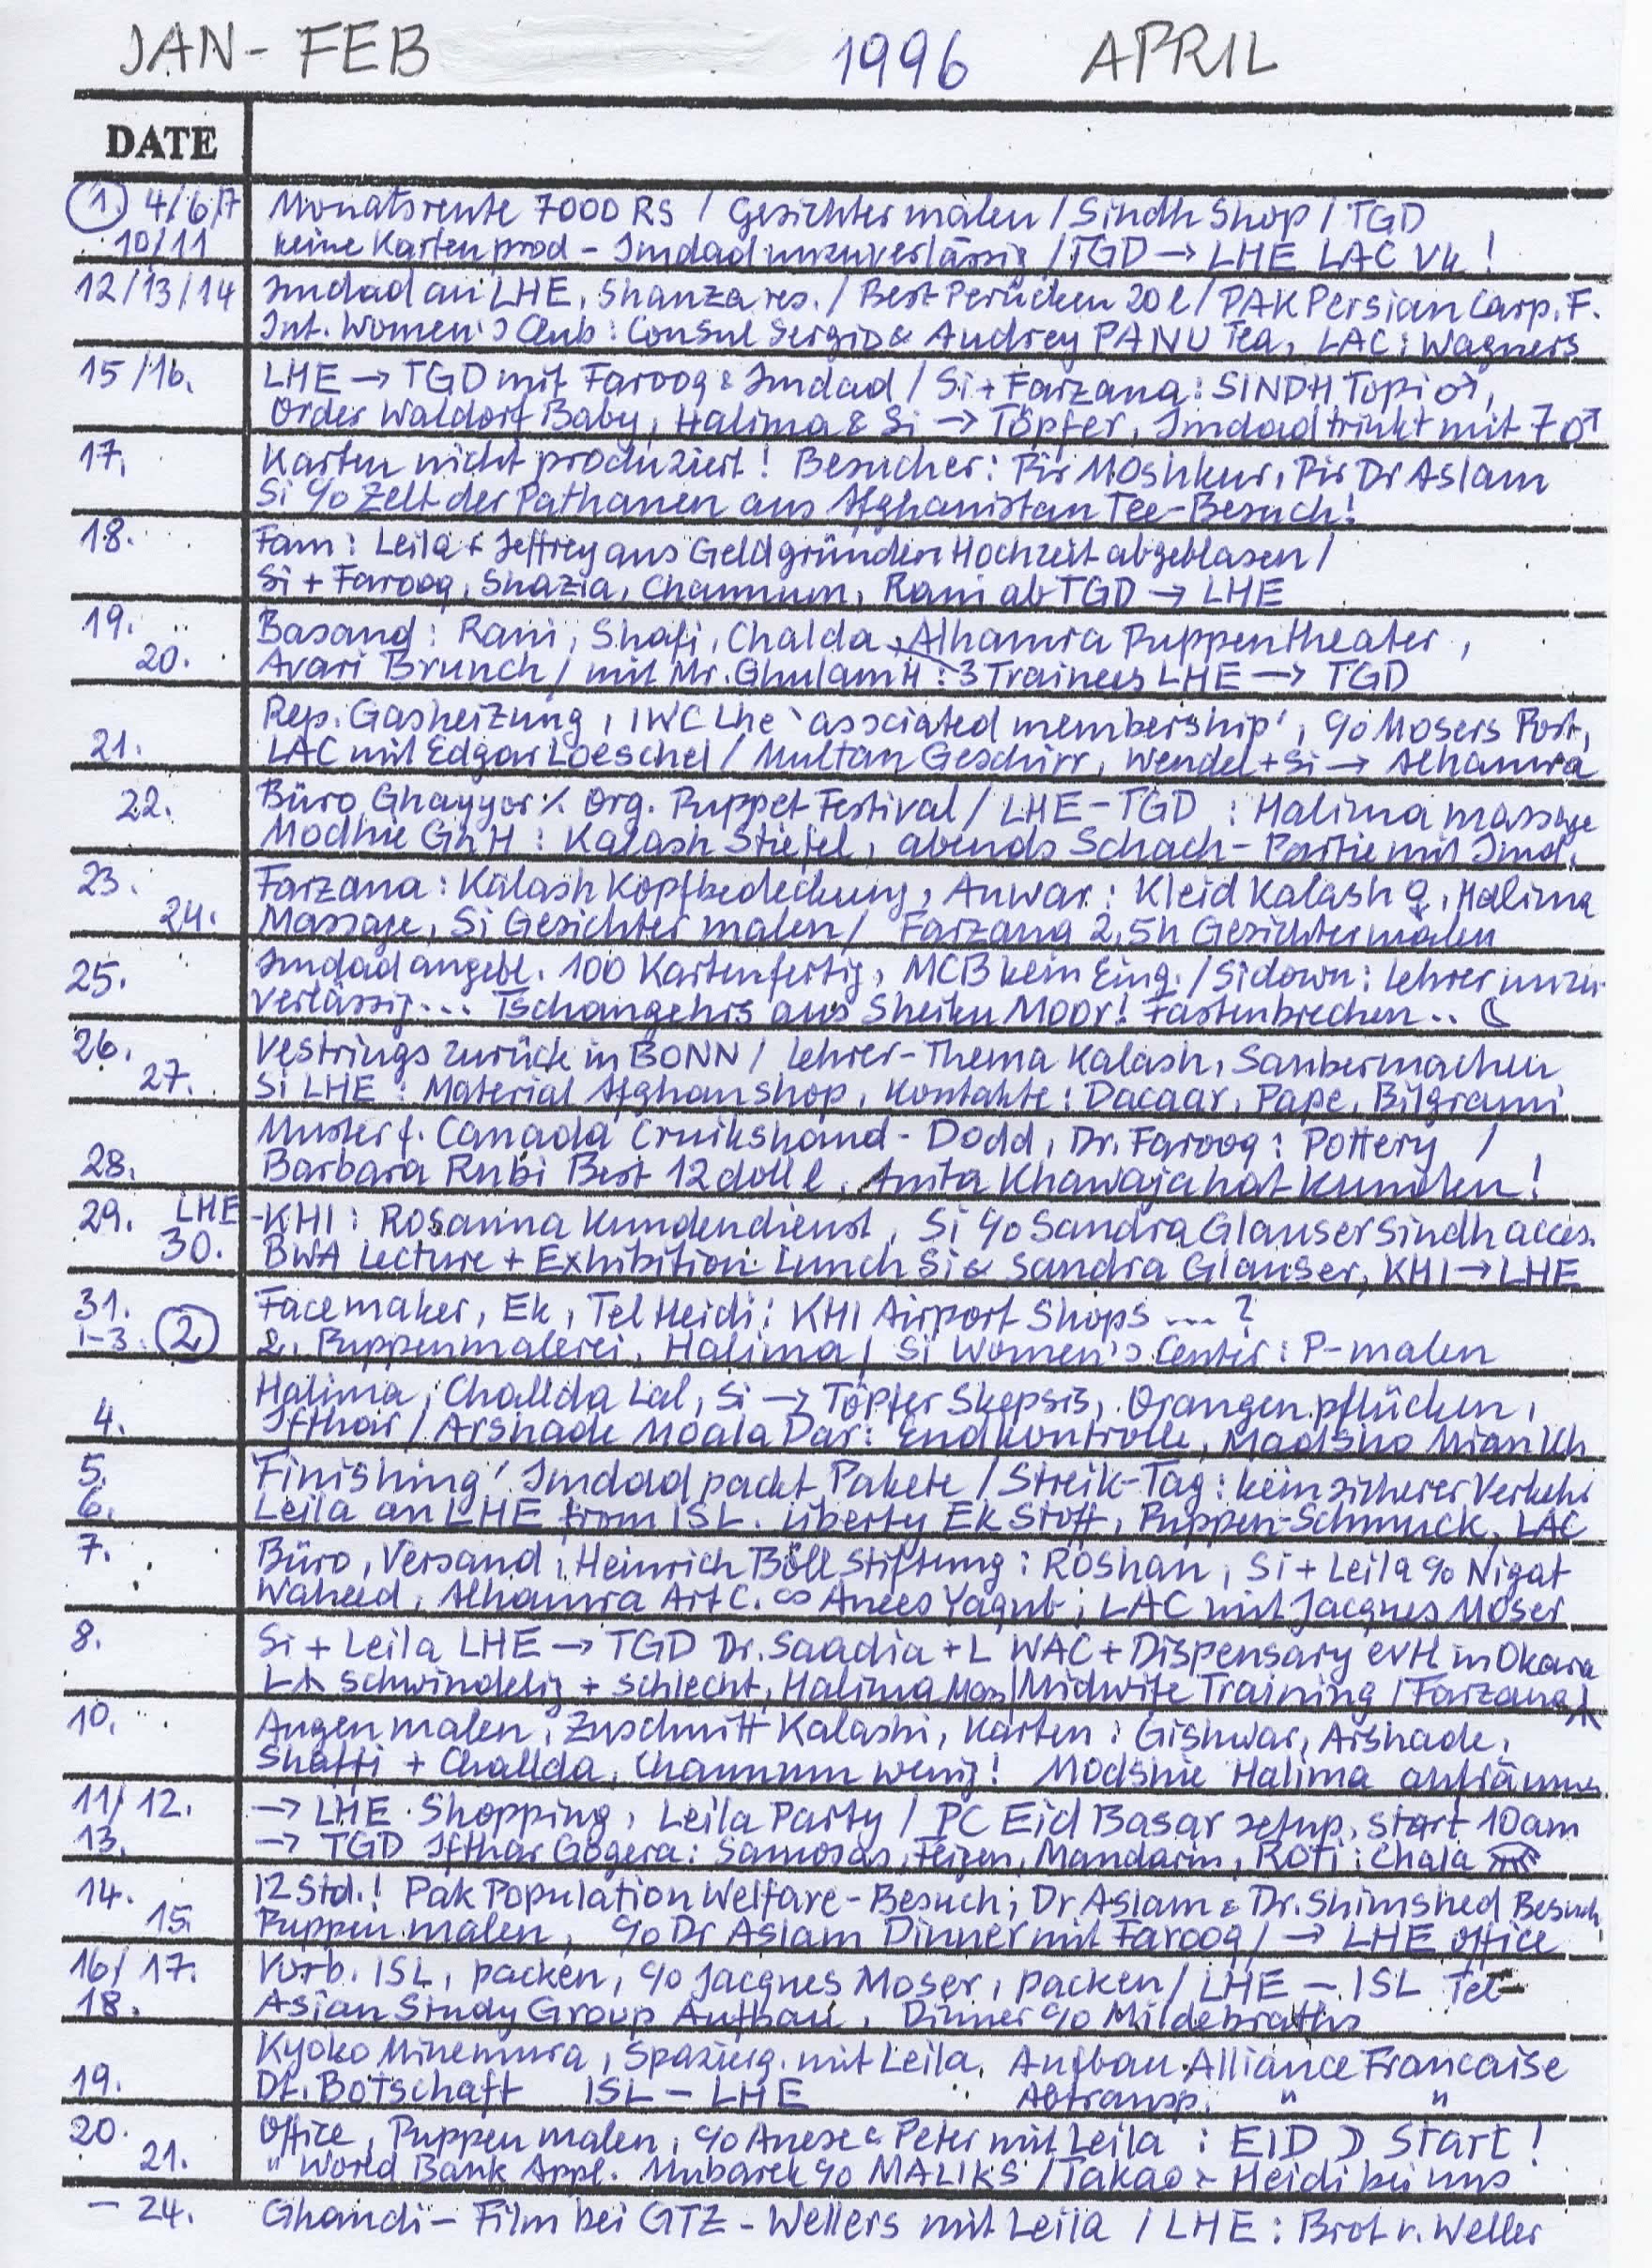 JAN - FEB 1996 APRIL
DATE
1. 4/6/7 Monatsrente 7000 RS / Gesichter malen / Sindh Shop / TGD
10/11 keine Karten prod - Imdad unzuverlässig / TGD → LHE LAC Vk !
12/13/14 Imdad an LHE, Shanza res. / Best Perücken 20 l / PAK Persian Carp. F.
Int. Women's Club : Consul Sergio & Audrey PANU Tea, LAC : Wagners
15/16. LHE → TGD mit Farooq & Imdad / Si + Farzana : SINDH Topi ♂,
Order Waldorf Baby, Halima & Si → Töpfer, Imdad trinkt mit 7 ♂
17. Karten nicht produziert ! Besucher : Pir Moshkur, Pir Dr Aslam
Si c/o Zelt der Pathanen aus Afghanistan Tee-Besuch !
18. Fam : Leila + Jeffrey aus Geldgründen Hochzeit abgeblasen /
Si + Farooq, Shazia, Channum, Rani ab TGD → LHE
19. Basand : Rani, Shafi, Chalda, Alhamra Puppentheater,
20. Avari Brunch / mit Mr. Ghulam H : 3 Trainees LHE → TGD
Rep. Gasheizung, IWC Lhe 'associated membership', c/o Mosers Post,
21. LAC mit Edgar Loeschel / Multan Geschirr, Wendel + Si → Alhamra
22. Büro Ghayyor % Org. Puppet Festival / LHE - TGD : Halima massage
Modhie Gh H : Kalash Stiefel, abends Schach - Partie mit Imd.
23. Farzana : Kalash Kopfbedeckung, Anwar : Kleid Kalash ♀, Halima
24. Massage, Si Gesichter malen / Farzana 2,5h Gesichter malen
25. Imdad angebl. 100 Karten fertig, MCB kein Eing. / Si down : Lehrer unzu-
verlässig ... Tschangehis aus Sheiku Moor ! Fastenbrechen .. ☾
26. Vestrings zurück in BONN / Lehrer - Thema Kalash, Saubermachen
27. Si LHE : Material Afghan shop, Kontakte : Dacaar, Pape, Bilgrami
Muster f. Canada Cruikshand - Dodd, Dr. Farooq : Pottery /
28. Barbara Rubi Best 12 doll l, Anita Khawaja hat Kunden !
29. LHE -KHI : Rosanna Kundendienst, Si c/o Sandra Glauser Sindh acces.
30. BWA Lecture + Exhibition Lunch Si & Sandra Glauser, KHI → LHE
31. Facemaker, Ek, Tel Heidi : KHI Airport Shops ... ?
1-3. 2 2. Puppenmalerei, Halima / Si Women's Center : P-malen
Halima, Challda Lal, Si → Töpfer Skepsis, Orangen pflücken,
4. Ifthar / Arshade Moala Dar : Endkontrolle, Madsho Mian Kh
5. 'Finishing' Imdad packt Pakete / Streik-Tag : kein sicherer Verkehr
6. Leila an LHE from ISL. Liberty Ek Stoff, Puppen-Schmuck, LAC
7. Büro, Versand, Heinrich Böll Stiftung : Roshan, Si + Leila c/o Nigat
Waheed, Alhamra Art C. ∞ Anees Yaqub, LAC mit Jacques Moser
8. Si + Leila LHE → TGD Dr. Saadia + L WAC + Dispensary evH in Okara
L schwindelig + schlecht, Halima Mas / Midwife Training / Farzana
10. Augen malen, Zuschnitt Kalashi, Karten : Gishwar, Arshade,
Shaffi + Challda, Channum wenig ! Modshie Halima aufräumen
11/12. → LHE Shopping, Leila Party / PC Eid Basar setup, start 10am
13. → TGD Ifthar Gogera : Samosas, Feigen, Mandarin, Roti : Chaja
14. 12 Std. ! Pak Population Welfare - Besuch ; Dr Aslam & Dr. Shimshed Besuch
15. Puppen malen, c/o Dr Aslam Dinner mit Farooq / → LHE office
16/17. Vorb. ISL, packen, c/o Jacques Moser, packen / LHE - ISL Tel
18. Asian Study Group Aufbau, Dinner c/o Mildebraths
Kyoko Minemura, Spazierg. mit Leila, Aufbau Alliance Francaise
19. Dt. Botschaft ISL - LHE Abtransp. " "
20. Office, Puppen malen, c/o Anese & Peter mit Leila : EID ☽ Start !
21. " World Bank Appl. Mubarek c/o MALIKS / Takao & Heidi bei uns
- 24. Ghandi - Film bei GTZ - Wellers mit Leila / LHE : Brot v. Weller